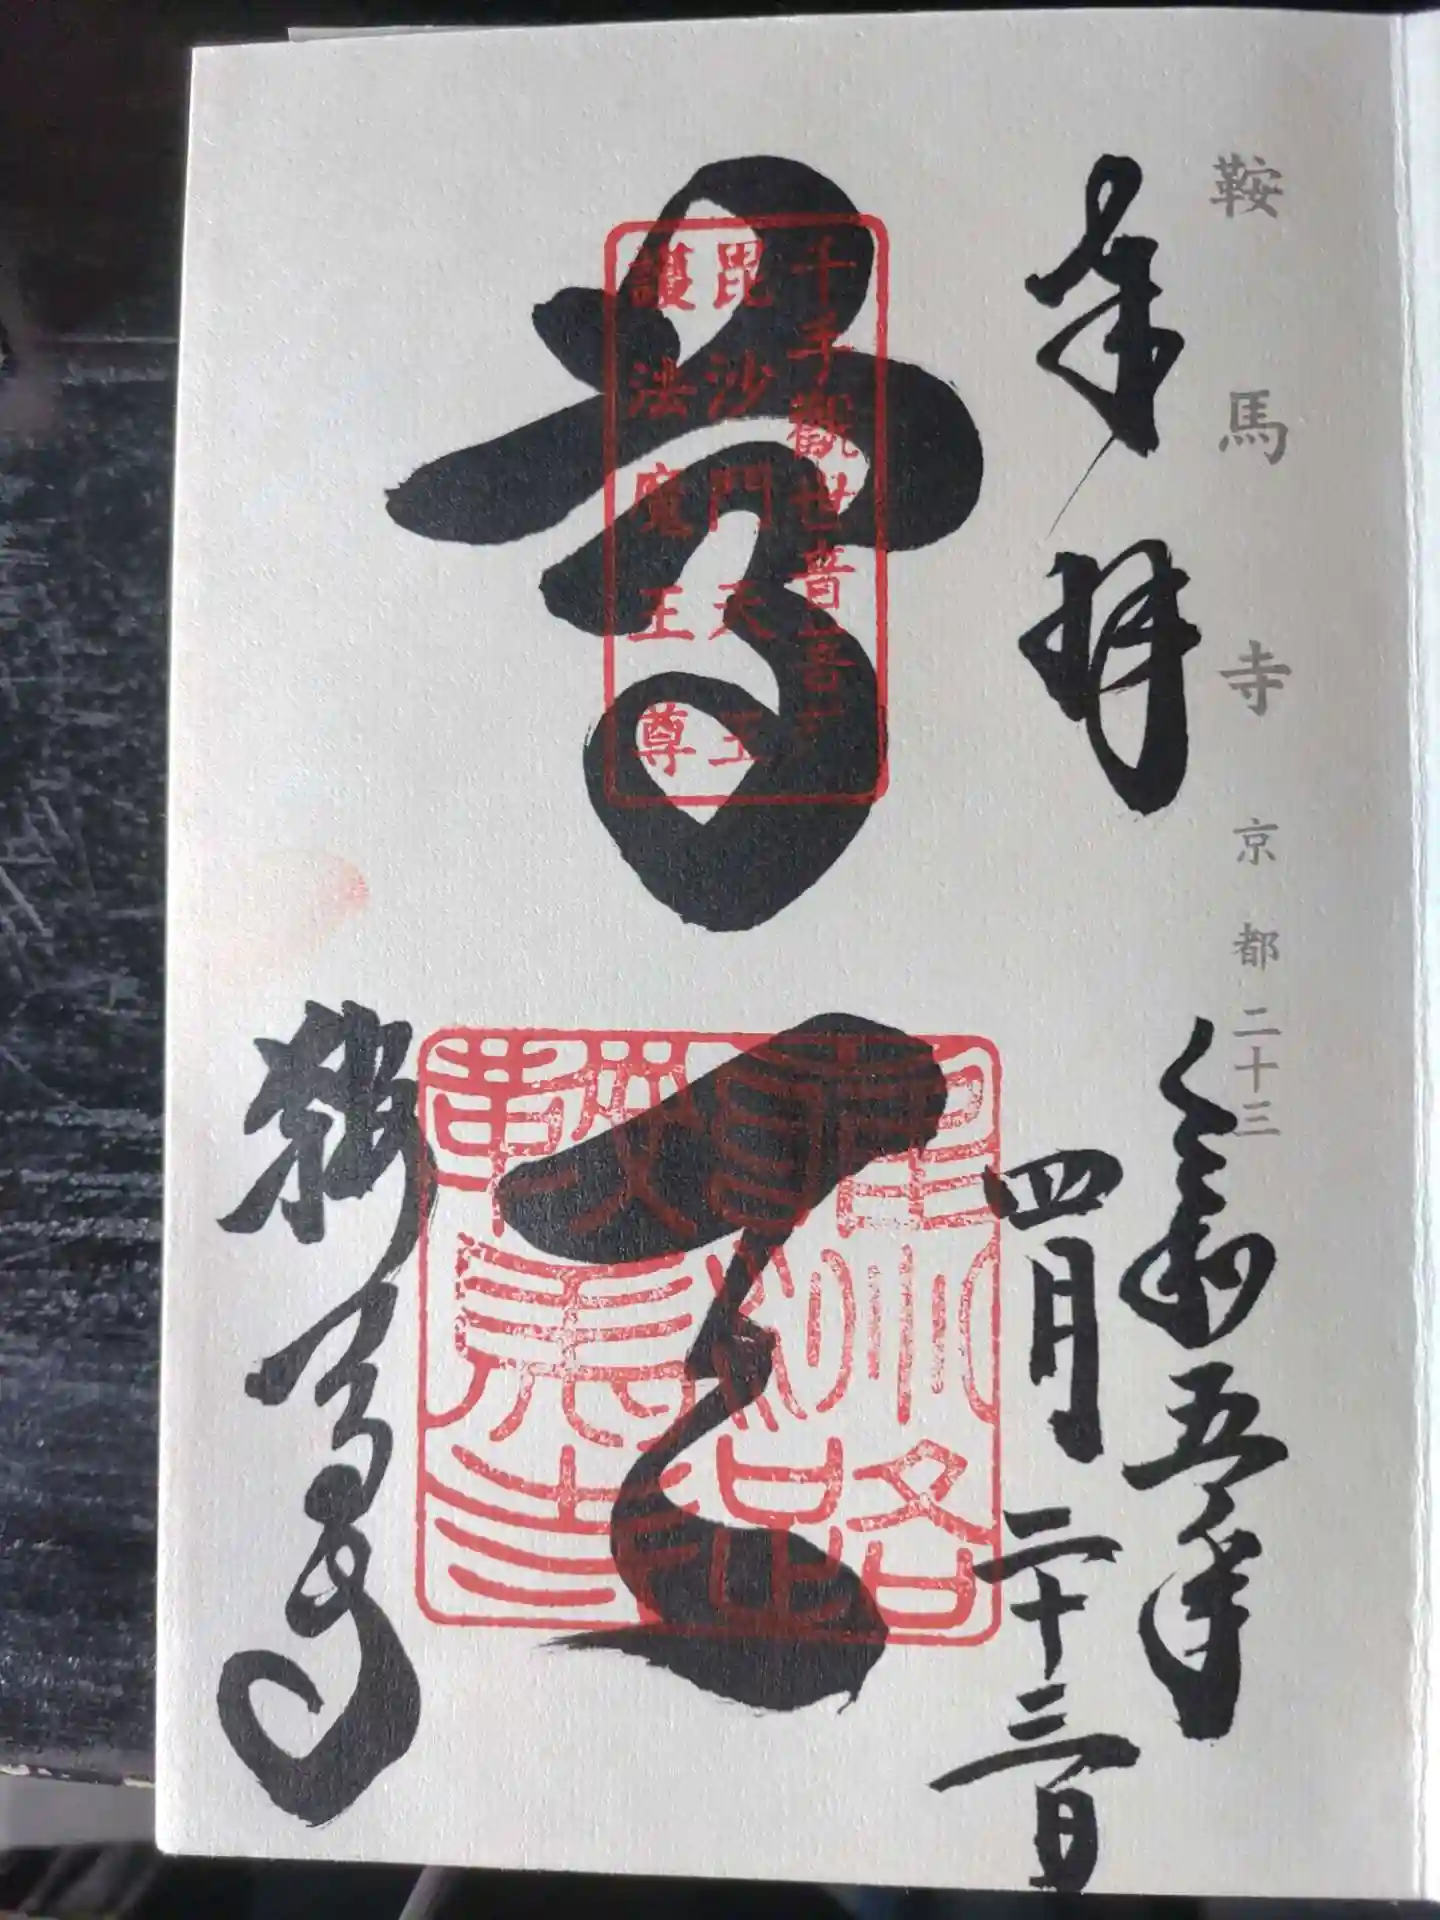 鞍馬寺 京都二十三
奉拝
令和五年
四月二十三日
千手觀世音菩薩
毘沙門天王
護法魔王尊
尊天
鞍馬寺